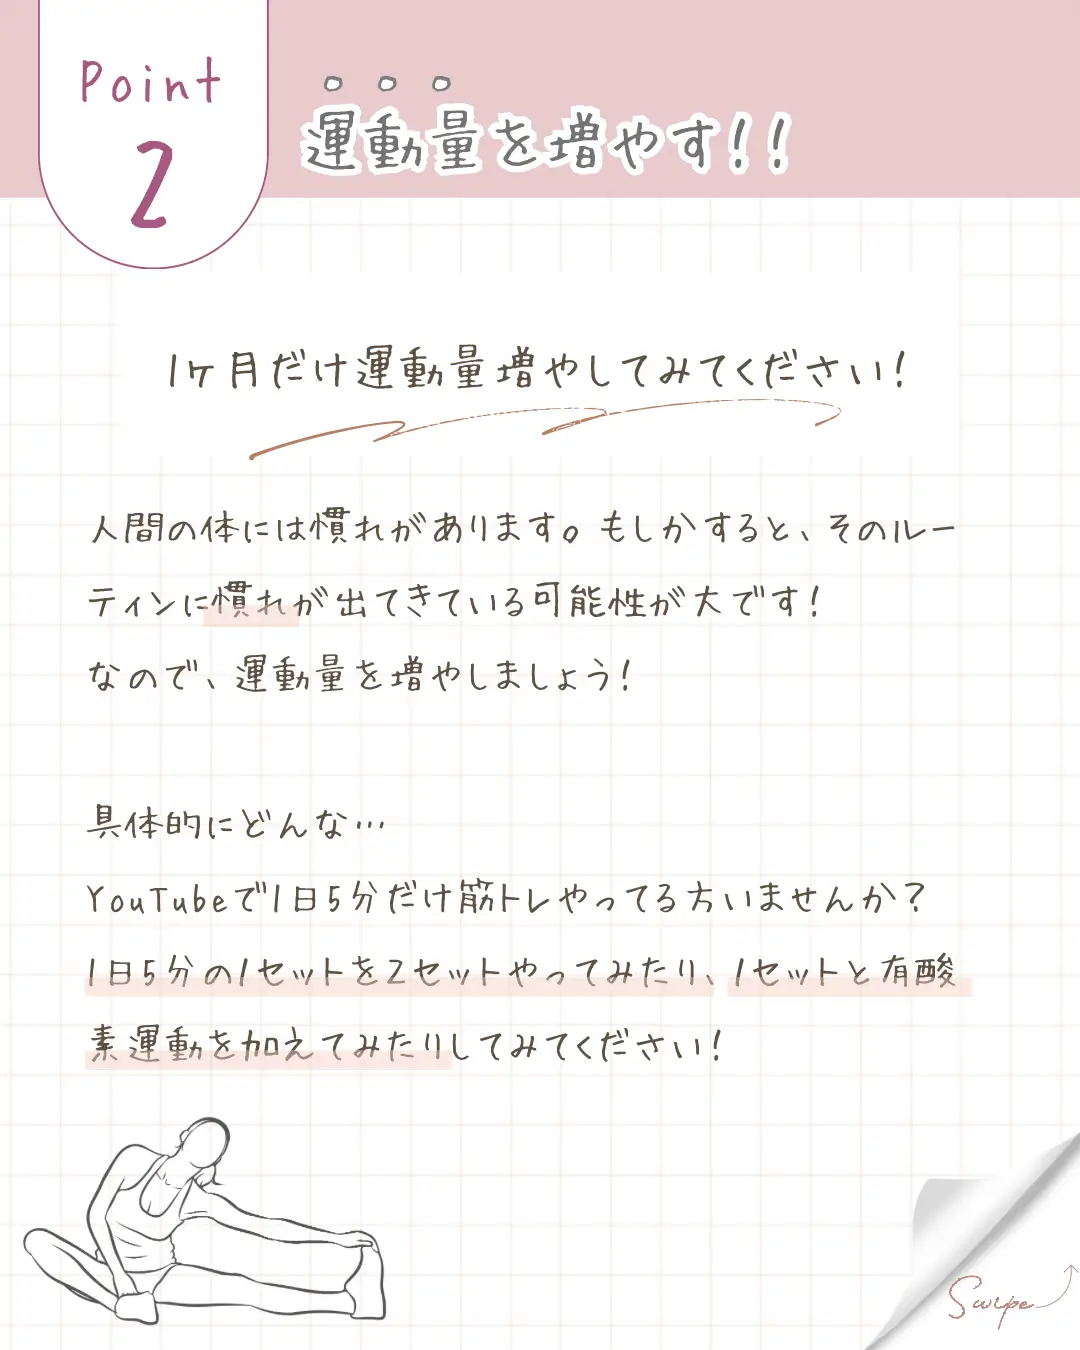 Point
2
運動量を増やす!!
1ヶ月だけ運動量増やしてみてください!
人間の体には慣れがあります。もしかすると、そのルー
ティンに慣れが出てきている可能性が大です!
なので、運動量を増やしましょう!
具体的にどんな…
YouTubeで1日5分だけ筋トレやってる方いませんか?
1日5分の1セットを2セットやってみたり、1セットと有酸
素運動を加えてみたりしてみてください!
Swipe